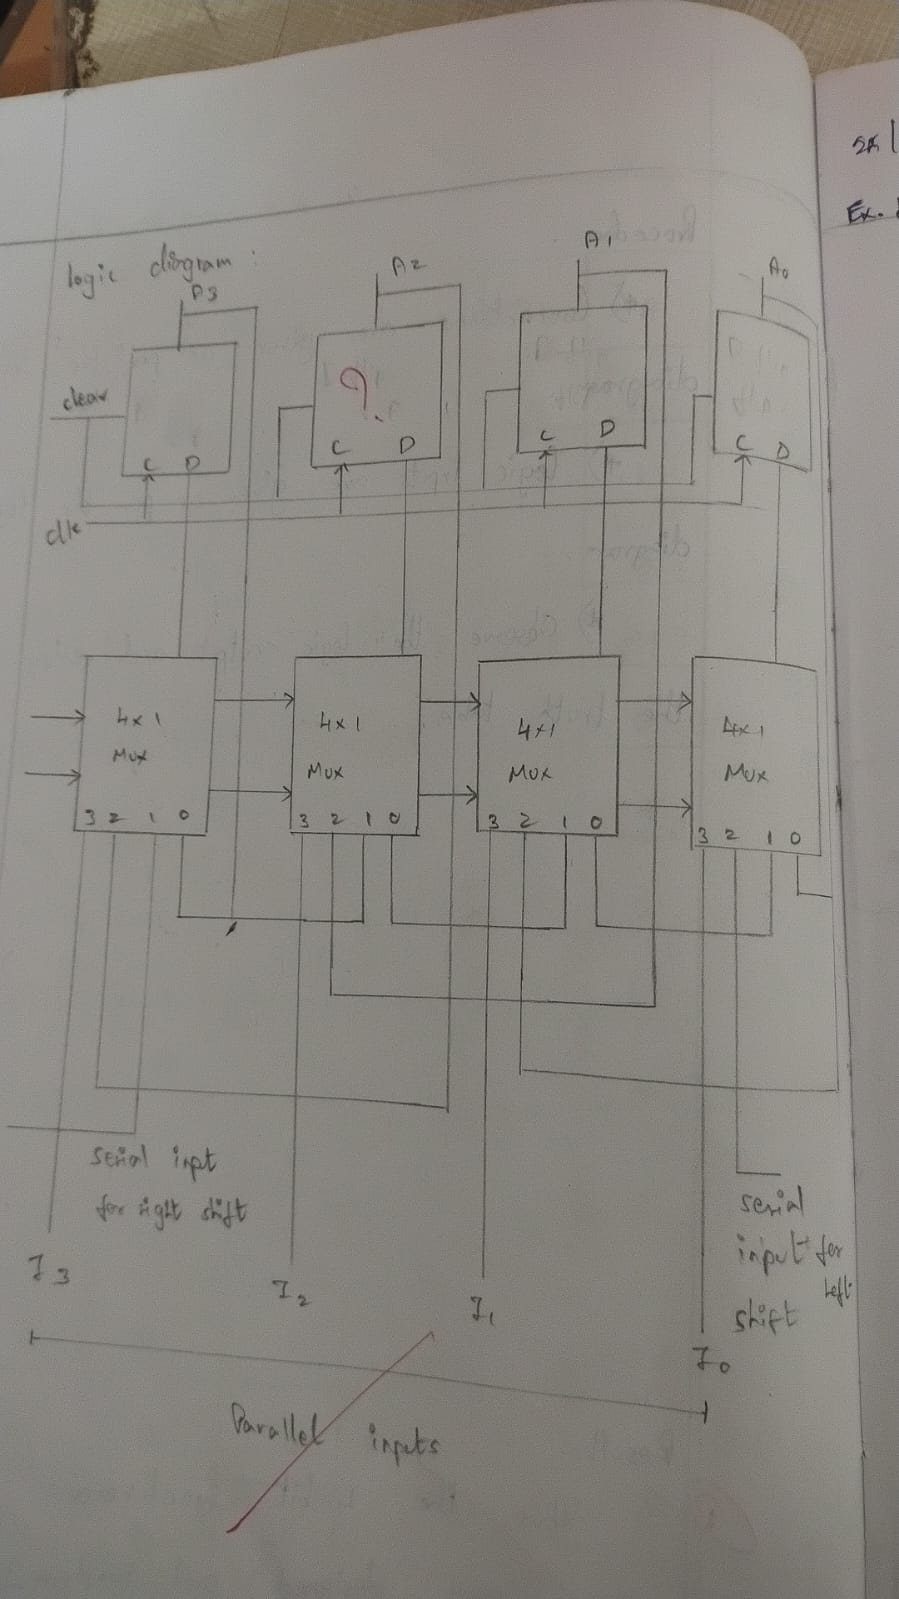 logic diagram :
A3
A2
A1
A0
clear
?
C D
C D
C D
C D
clk
4x1
Mux
3 2 1 0
4x1
Mux
3 2 1 0
4x1
Mux
3 2 1 0
4x1
Mux
3 2 1 0
serial inpt
for right shift
serial
input for
Left
shift
I3
I2
I1
I0
Parallel inputs
Ex.